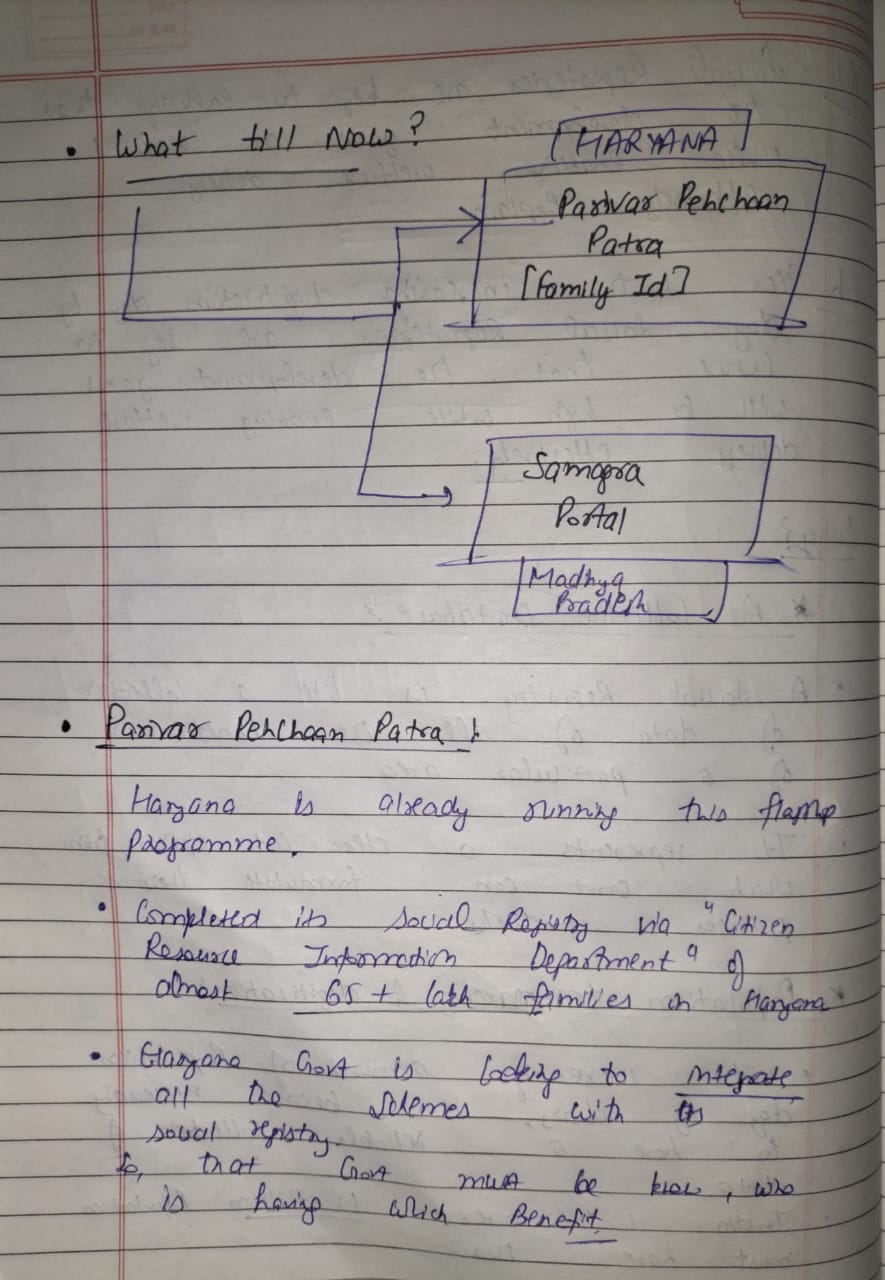 • What till Now?
[HARYANA]
Parivar Pehchaan
Patra
[Family Id]
Samagra
Portal
Madhya
Pradesh
• Parivar Pehchaan Patra :
Haryana is already running this
Programme.
• Completed its Social Registry via "Citizen
Resource Information Department" of
almost 65+ lakh families in Haryana
• Haryana Govt is looking to integrate
all the Schemes with its
social registry.
So, that Govt must be know, who
is having which Benefit.